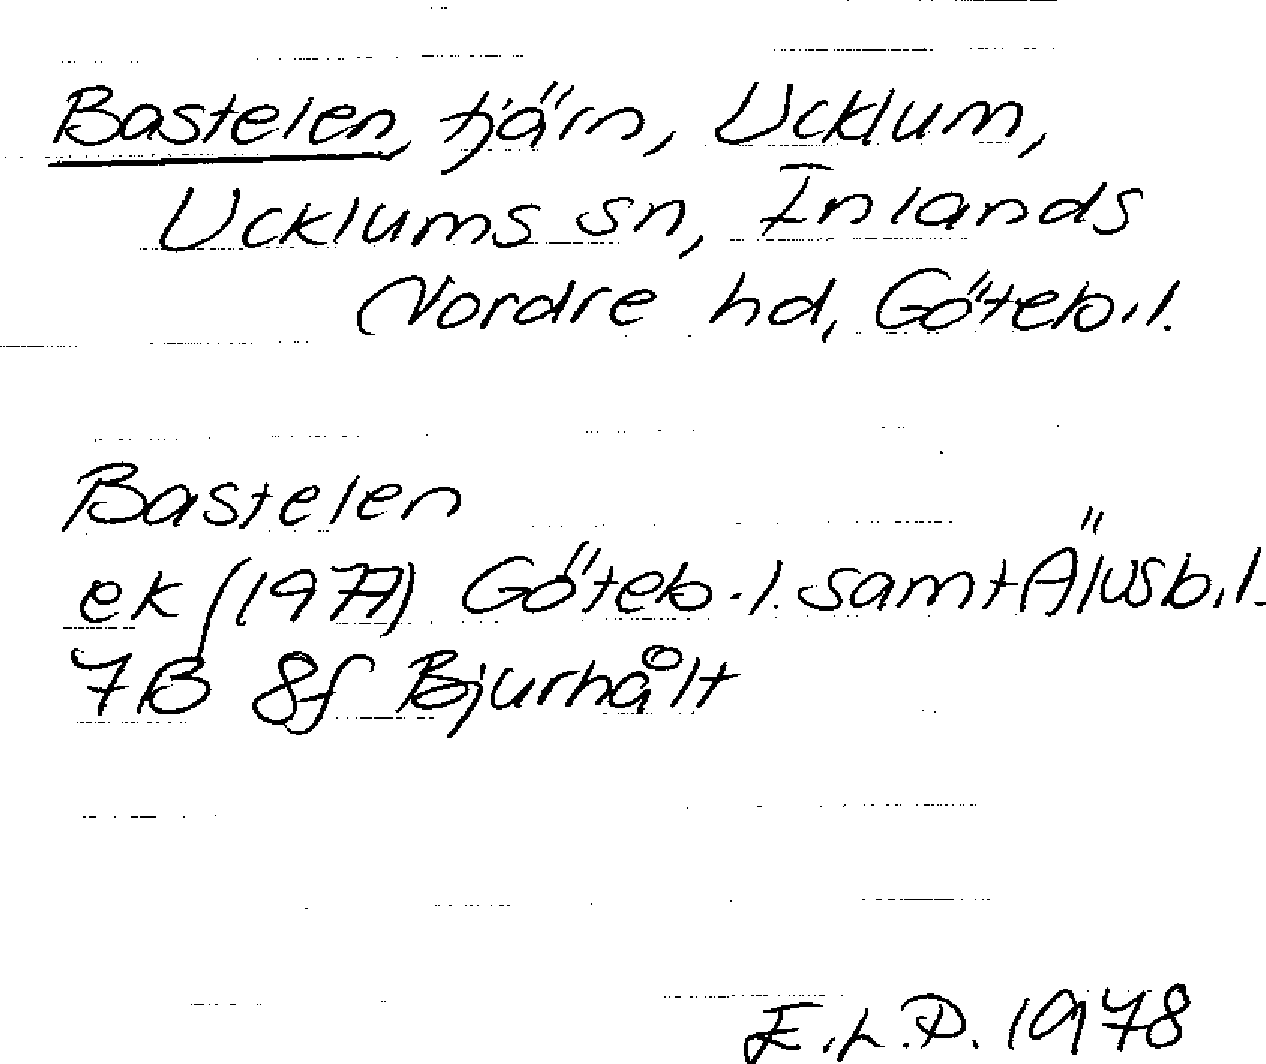 Bastelen, tjärn, Ucklum,
Ucklums sn, Inlands
Nordre hd, Göteb.l.
Bastelen
ek (1977) Göteb.l. samt Älvsb.l.
7B 8f Bjurhålt
E.L.P. 1978